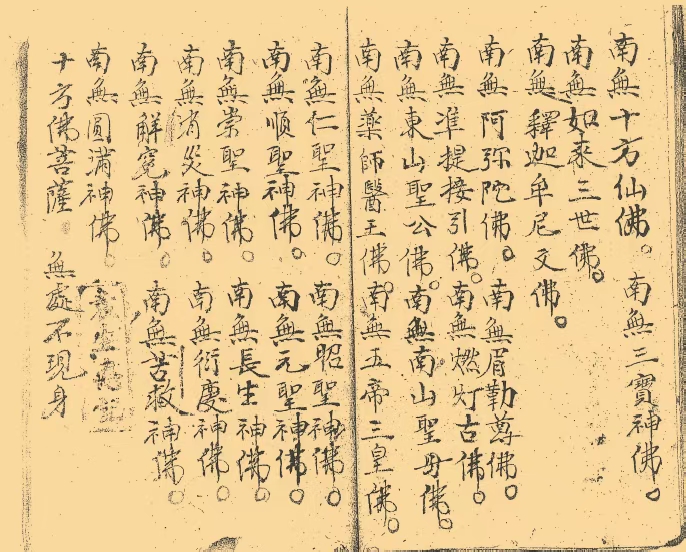 南無十方仙佛。南無三寶神佛。
南無如來三世佛。
南無釋迦牟尼文佛。
南無阿弥陀佛。南無眉勒尊佛。
南無准提接引佛。南無燃灯古佛。
南無東山聖公佛。南無南山聖母佛。
南無藥師醫王佛。南無五帝三皇佛。
南無仁聖神佛。南無昭聖神佛。
南無順聖神佛。南無元聖神佛。
南無崇聖神佛。南無長生神佛。
南無消災神佛。南無衍慶神佛。
南無解冤神佛。南無苦救神佛。
南無圓滿神佛。
十方佛菩薩。無處不現身